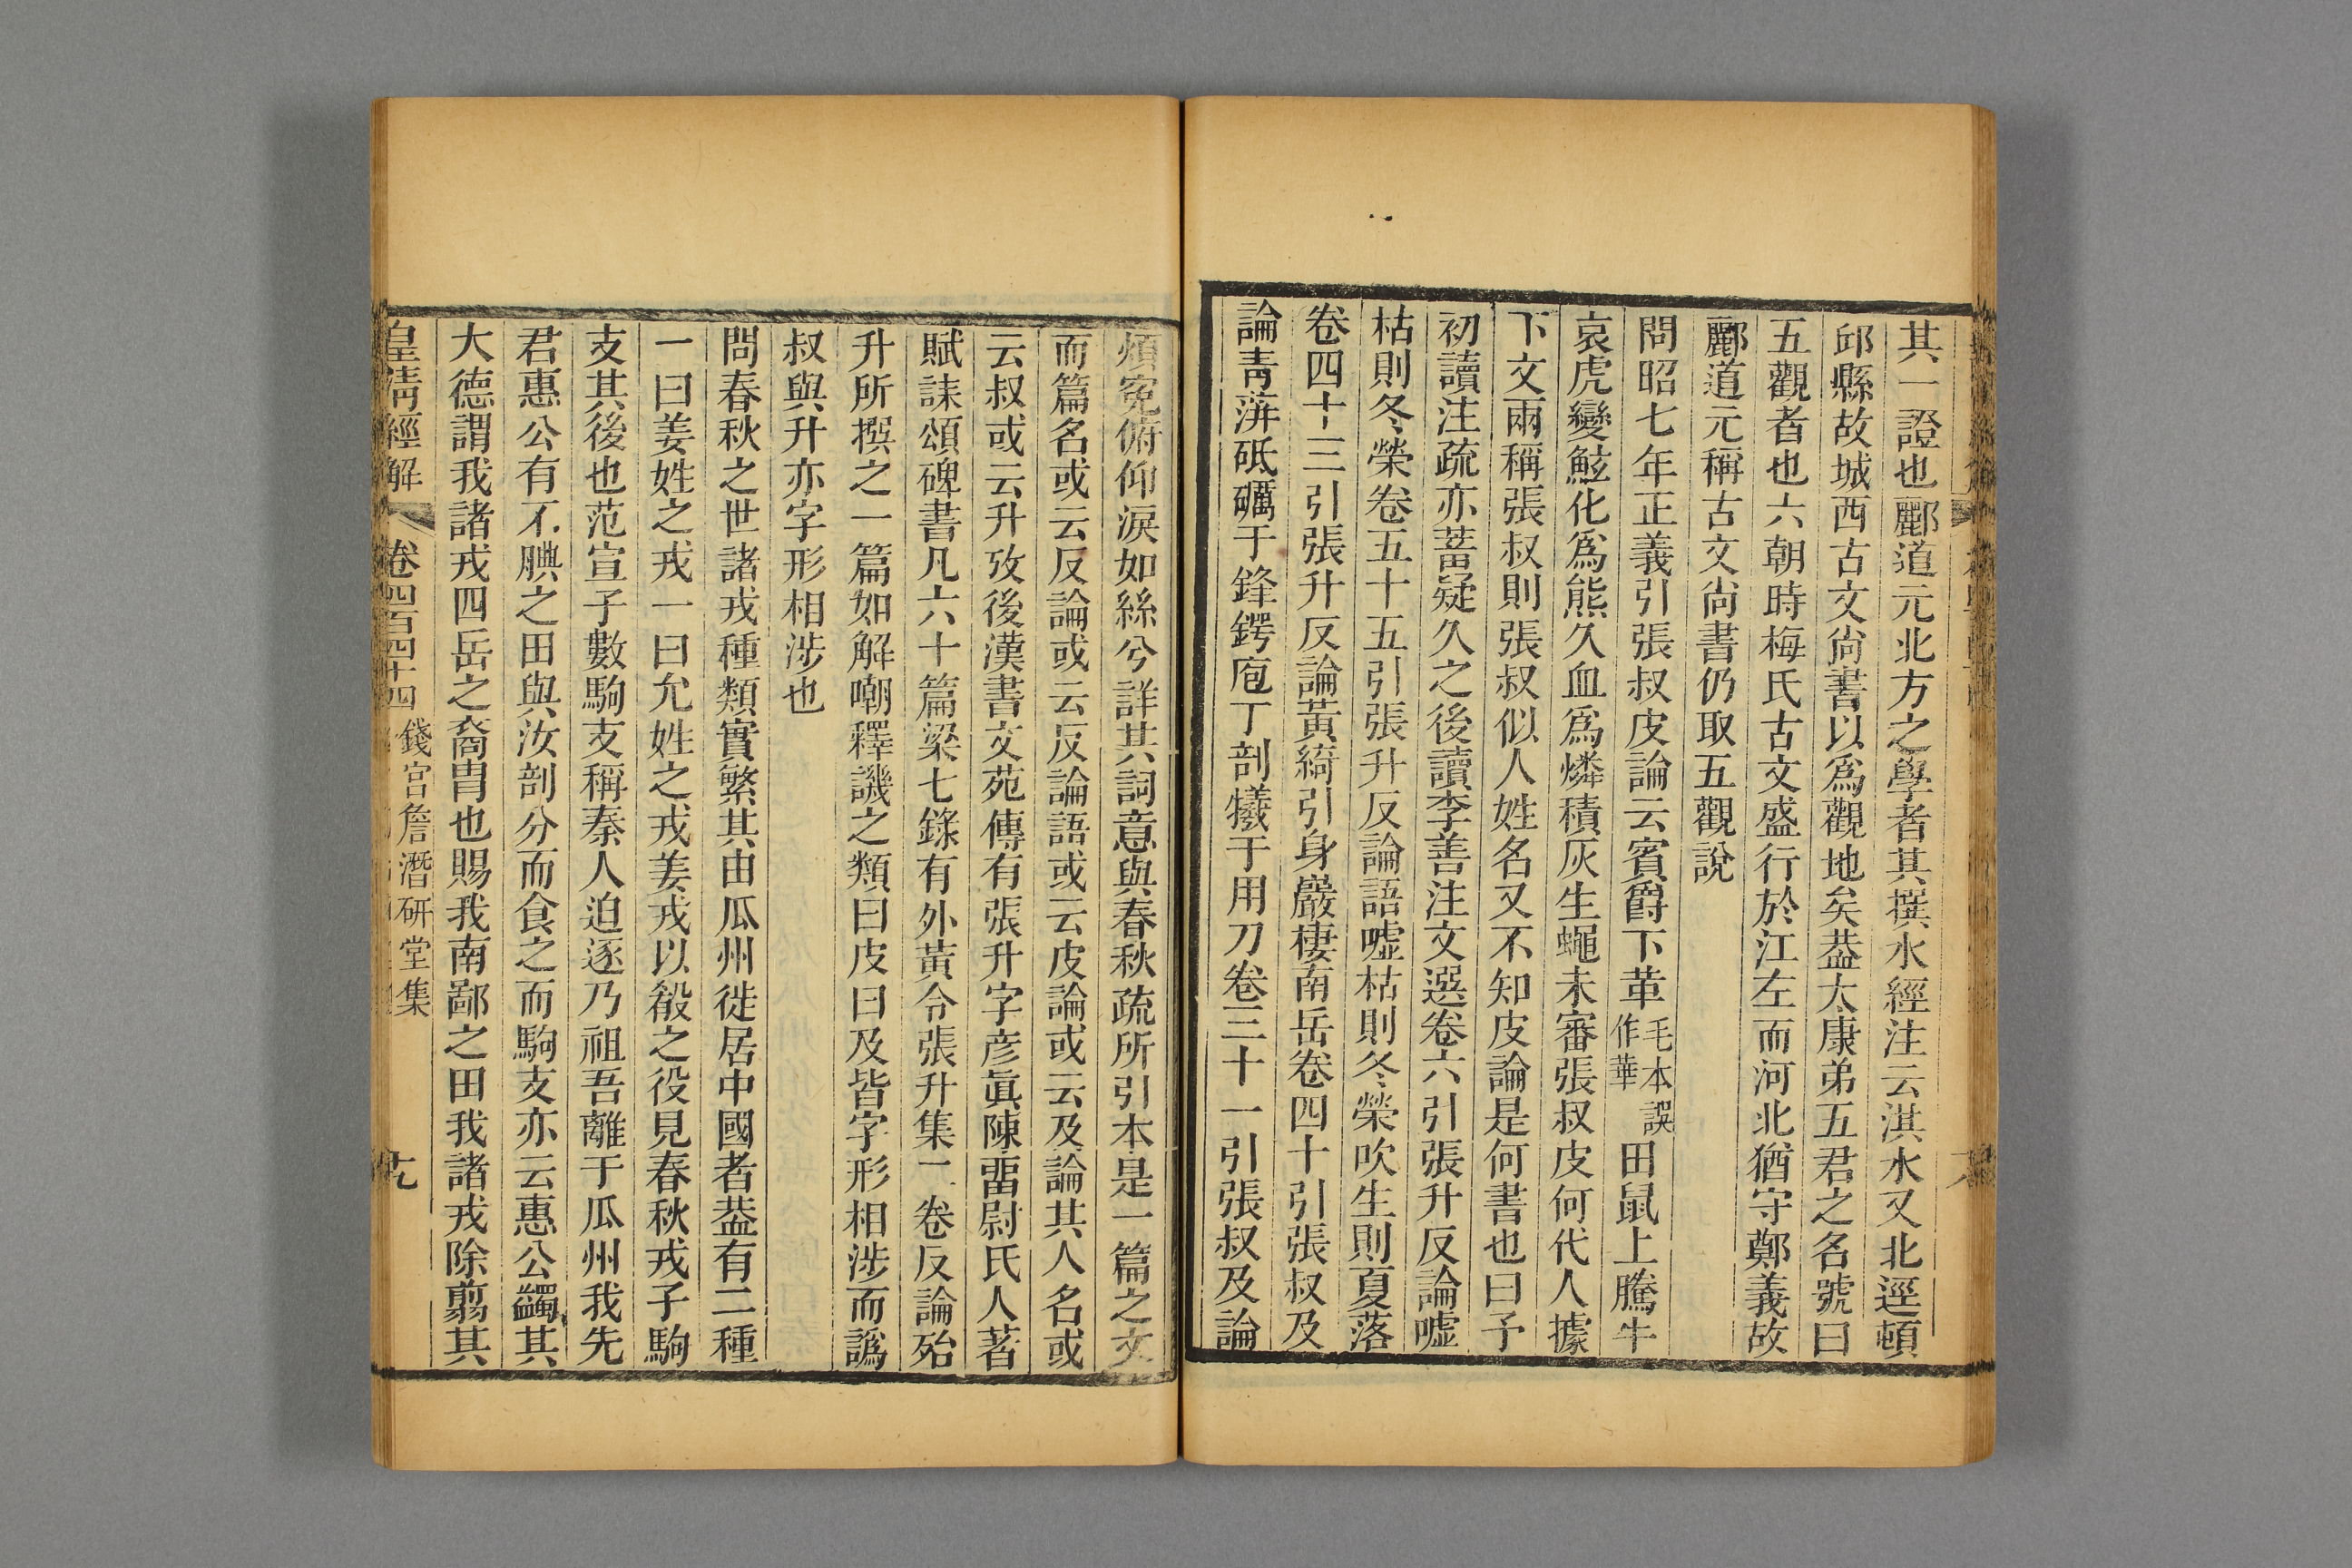 其一證也酈道元北方之學者其撰水經注云淇水又北逕頓
邱縣故城西古文尙書以爲觀地矣葢太康弟五君之名號曰
五觀者也六朝時梅氏古文盛行於江左而河北猶守鄭義故
酈道元稱古文尙書仍取五觀說
問昭七年正義引張叔皮論云賓爵下革毛本誤作華田鼠上騰牛
哀虎變鮌化爲熊久血爲燐積灰生蠅未審張叔皮何代人據
下文兩稱張叔則張叔似人姓名又不知皮論是何書也曰予
初讀注疏亦蓄疑久之後讀李善注文選卷六引張升反論噓
枯則冬榮卷五十五引張升反論語噓枯則冬榮吹生則夏落
卷四十三引張升反論黃綺引身巖棲南岳卷四十引張叔及
論靑蓱砥礪于鋒鍔庖丁剖犧于用刀卷三十一引張叔及論
煩冤俯仰淚如絲兮詳其詞意與春秋疏所引本是一篇之文
而篇名或云反論或云反論語或云皮論或云及論其人名或
云叔或云升攷後漢書文苑傳有張升字彥眞陳畱尉氏人著
賦誄頌碑書凡六十篇梁七錄有外黃令張升集二卷反論殆
升所撰之一篇如解嘲釋譏之類曰皮曰及皆字形相涉而譌
叔與升亦字形相涉也
問春秋之世諸戎種類實繁其由瓜州徙居中國者葢有二種
一曰姜姓之戎一曰允姓之戎姜戎以殽之役見春秋戎子駒
支其後也范宣子數駒支稱秦人迫逐乃祖吾離于瓜州我先
君惠公有不腆之田與汝剖分而食之而駒支亦云惠公蠲其
大德謂我諸戎四岳之裔胄也賜我南鄙之田我諸戎除翦其
皇淸經解 卷四百四十四 錢宮詹潛研堂集 十九